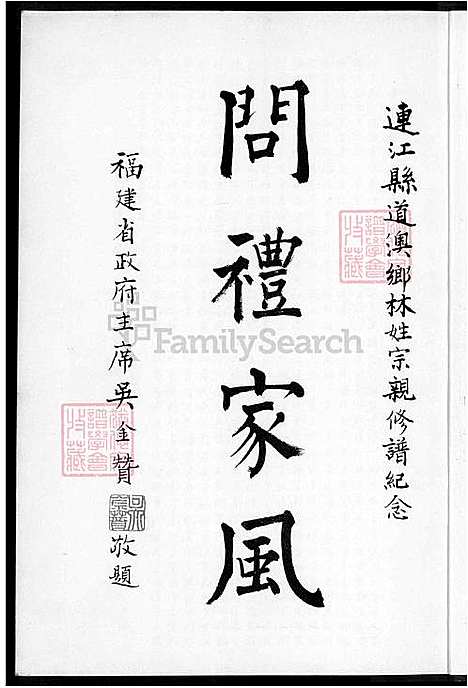 連江縣道澳鄉林姓宗親修譜紀念
問禮家風
福建省政府主席吳金贊敬題
FamilySearch
譜學會
收藏
譜學會
收藏